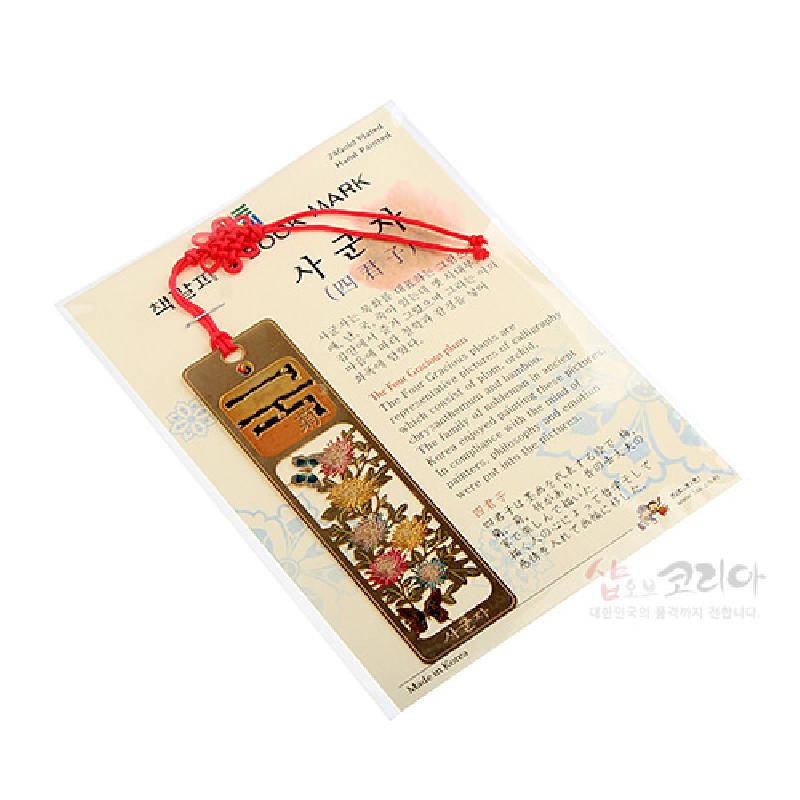 24Gold Plated
Hand Painted
책갈피 BOOK MARK
사군자
(四君子)
사군자는 묵화를 대표하는 그림
매, 난, 국, 죽이 있는데 옛 사대부
집안에서 즐겨 그렸으며 그리는 이의
마음에 따라 철학과 감정을 넣어
화폭에 담았다.
The Four Gracious plants
The Four Gracious plants are
representative pictures of calligraphy
which consist of plum, orchid,
chrysanthemum and bamboo.
The family of nobleman in ancient
Korea enjoyed painting these pictures.
In compliance with the mind of
painters, philosophy and emotion
were put into the pictures.
四君子
四君子は墨画を代表する絵で、梅、
국
菊
사군자
Made in Korea
샵오브코리아
대한민국의 품격까지 전합니다.